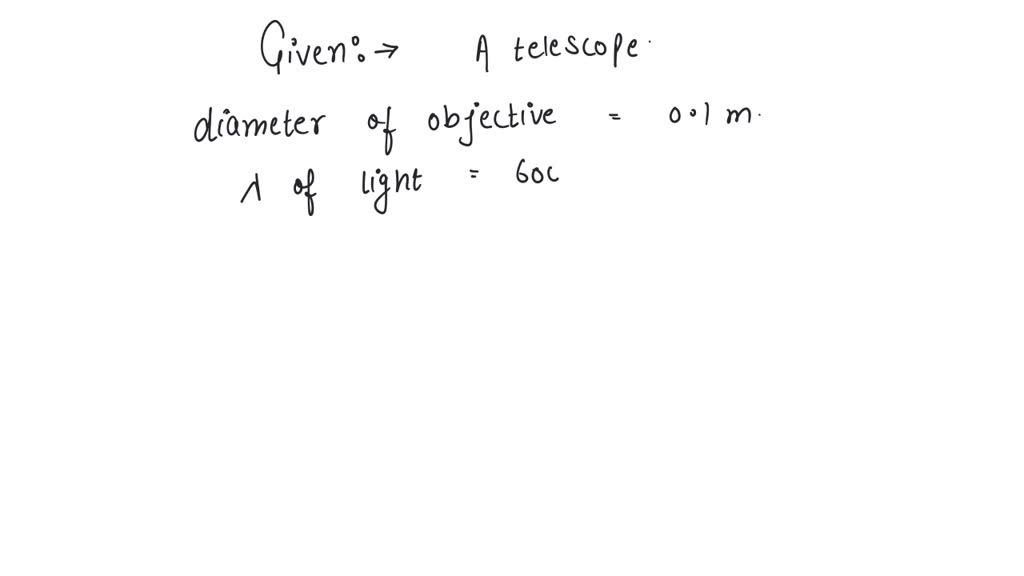 Given:→ A telescope.
diameter of objective = 0.1 m.
λ of light = 60c